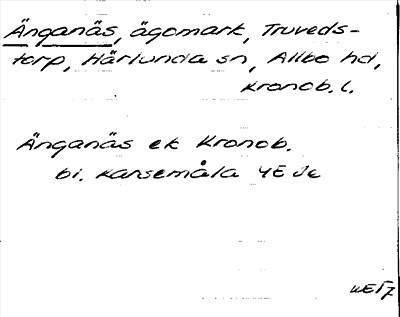 Änganäs, ägomark, Truveds-
torp, Härlunda sn, Allbo hd,
Kronob. l.
Änganäs ek Kronob.
bl. Karsemåla 4E Je